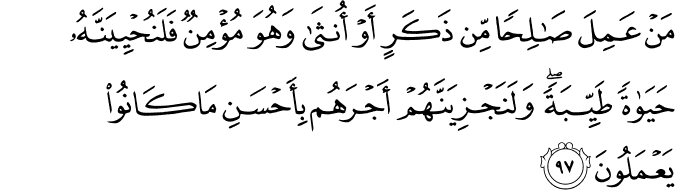 مَنۡ عَمِلَ صَٰلِحٗا مِّن ذَكَرٍ أَوۡ أُنثَىٰ وَهُوَ مُؤۡمِنٞ فَلَنُحۡيِيَنَّهُۥ
حَيَوٰةٗ طَيِّبَةٗۖ وَلَنَجۡزِيَنَّهُمۡ أَجۡرَهُم بِأَحۡسَنِ مَا كَانُواْ
يَعۡمَلُونَ ٩٧